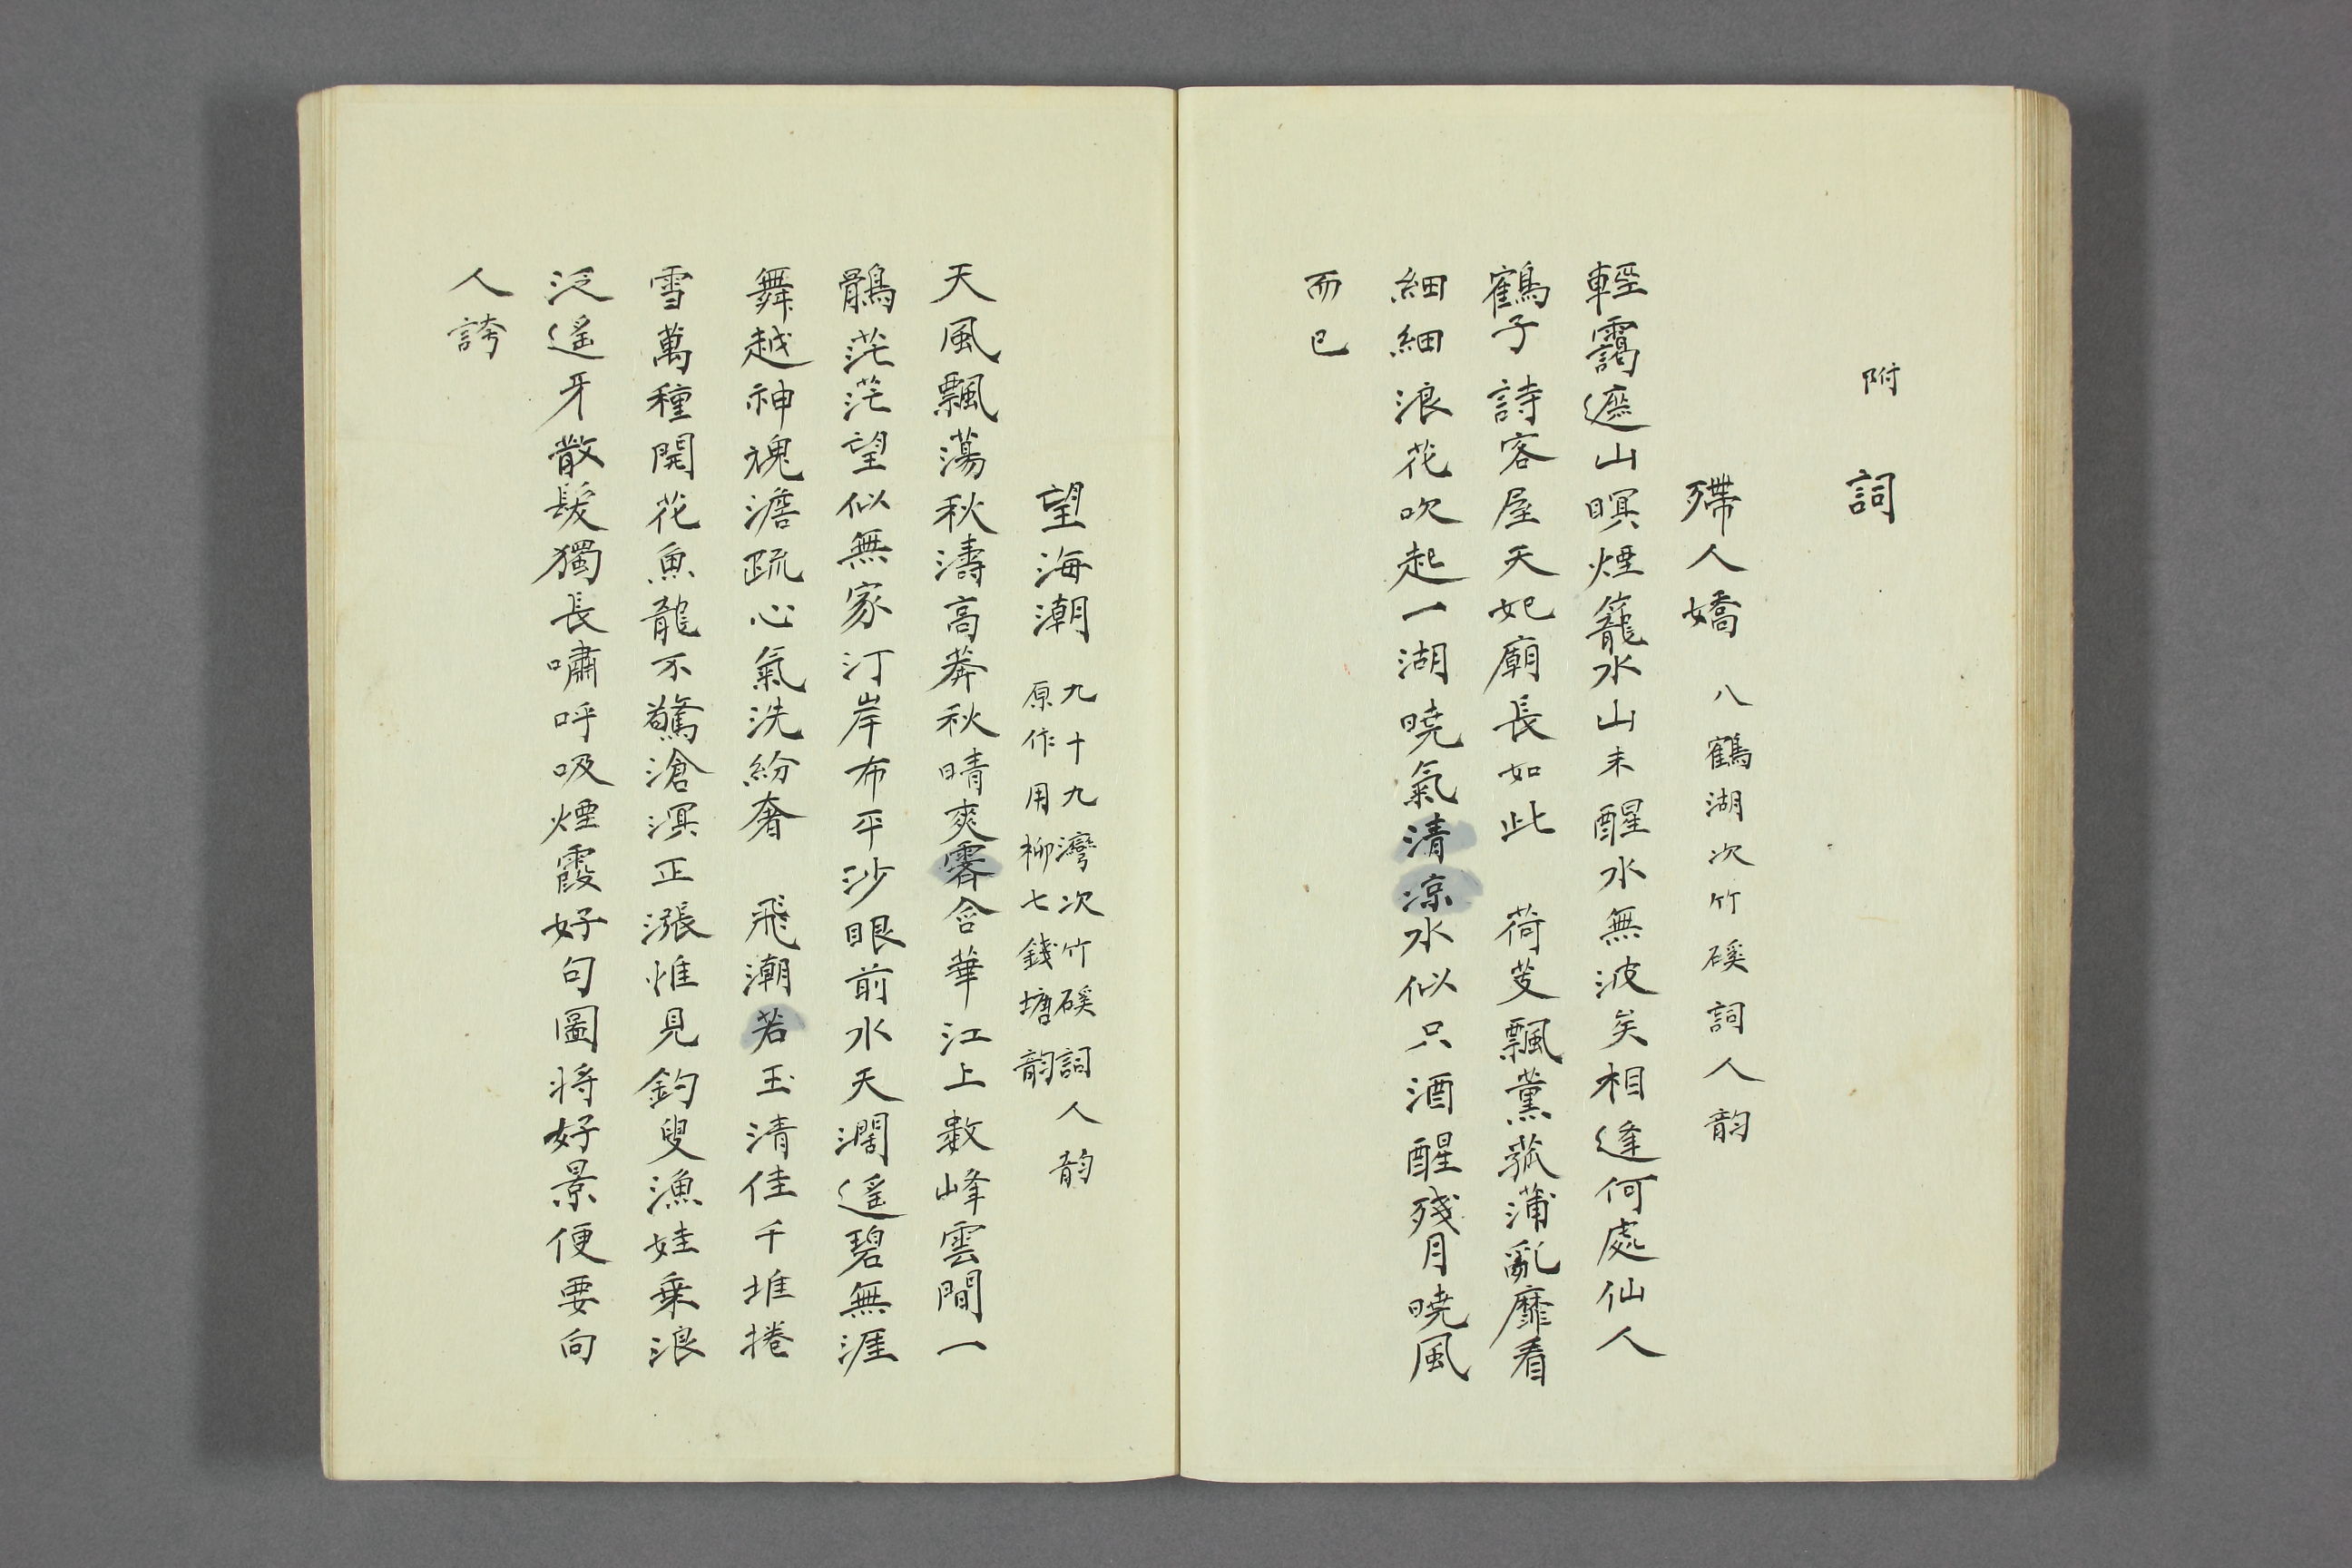 附
詞
殢人嬌 八鶴湖次竹磎詞人韵
輕靄遮山暝煙籠水山未醒水無波矣相逢何處仙人
鶴子詩客屋天妃廟長如此 荷芰飄薫菰蒲亂靡看
細細浪花吹起一湖曉氣清凉水似只酒醒殘月曉風
而已
望海潮 九十九灣次竹磎詞人韵
原作用柳七錢塘韵
天風飄蕩秋濤高莽秋晴爽霽含華江上數峰雲間一
鶻茫茫望似無家汀岸布平沙眼前水天濶遙碧無涯
舞越神魂澹疏心氣洗紛奢 飛潮若玉清佳千堆捲
雪萬種開花魚龍不驚滄溟正漲惟見釣叟漁娃乗浪
泛遙牙散髮獨長嘯呼吸煙霞好句圖将好景便要向
人誇